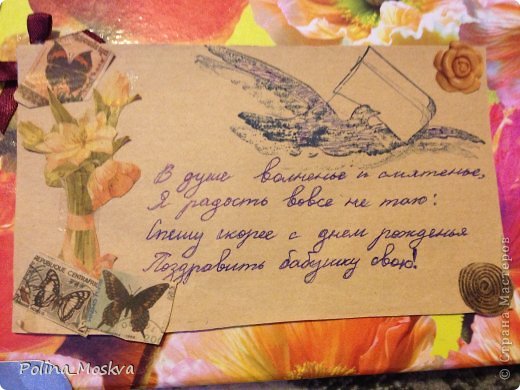 В душе волненье и смятенье,
Я радость вовсе не таю:
Спешу скорее с днем рожденья
Поздравить бабушку свою!
REPUBLIQUE CENTRAFRICAINE
Polina_Moskva
© Страна Мастеров